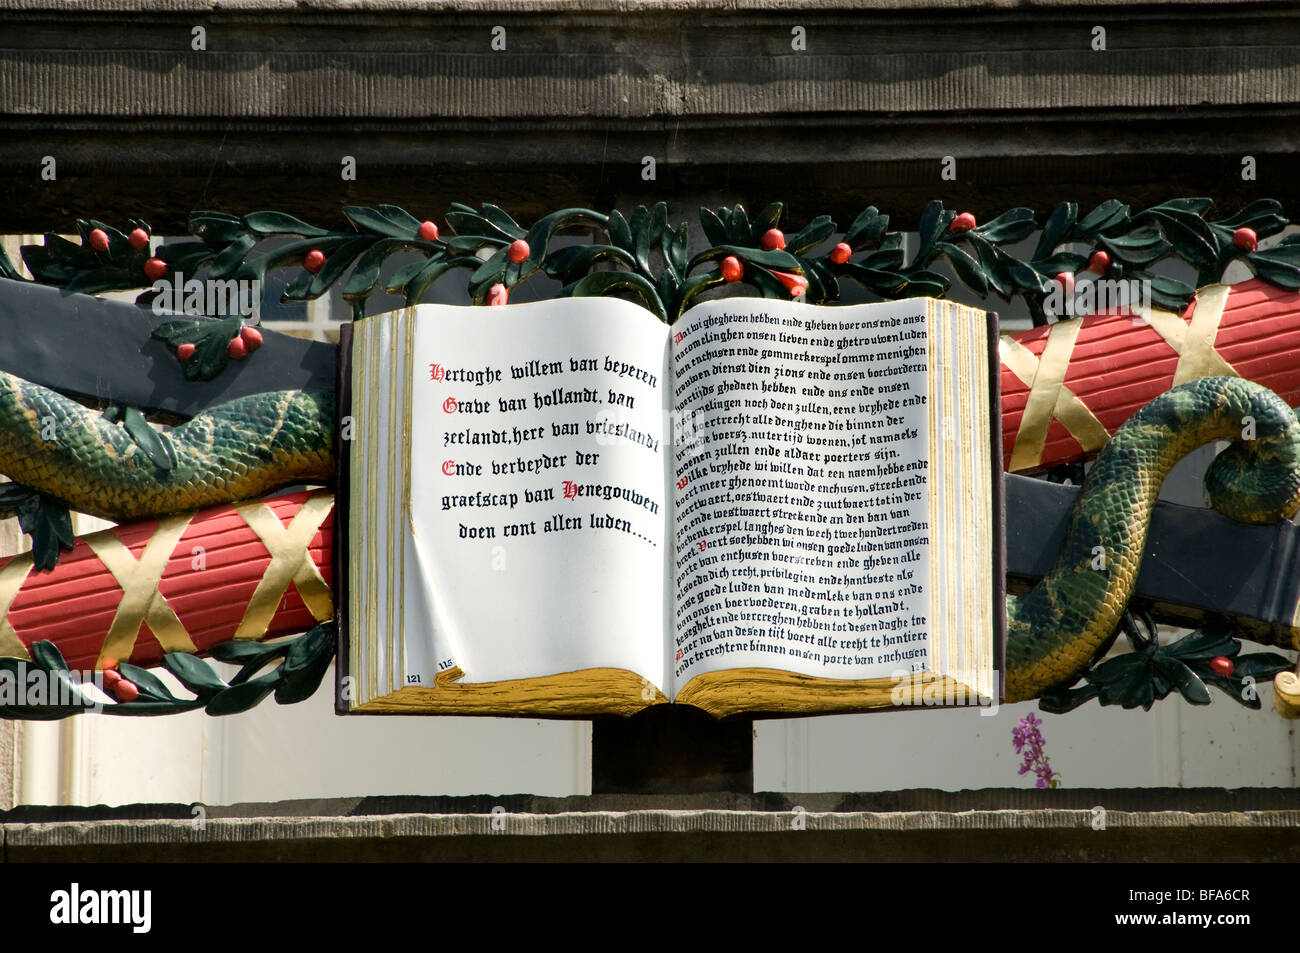 Hertoghe willem van beyeren
Grave van hollandt, van
zeelandt, here van vrieslandt
Ende verbeyder der
graefscap van Henegouwen
doen cont allen luden.....
115
121
Dat wi ghegheven hebben ende gheven voer ons ende onse
nacomelinghen onsen lieven ende ghetrouwen luden
van enchusen ende gommerkerspel omme menighen
trouwen dienst dien zi ons ende onsen voervorderen
voertijds ghedaen hebben ende ons ende onsen
nacomelingen noch doen zullen, eene vryhede ende
een poertrecht alle den ghene die binnen der
vryhede voersz. nutertijd woenen, jof namaels
woenen zullen ende aldaer poerters sijn.
Wilke vryhede wi willen dat een naem hebbe ende
voert meer ghenoemt worde enchusen, streckende
noertwaert, oestwaert ende zuutwaert tot in der
zee, ende westwaert streckende an den ban van
bovenkerspel langhes den wech twee hondert roeden
breet. Voert soe hebben wi onsen goede luden van onsen
poerte van enchusen voerscreven ende gheven alle
alsoeda dich recht, privilegien ende hantveste als
onse goede luden van medemleke van ons ende
van onsen voervoederen, graven te hollandt,
beseghelt ende vercreghen hebben tot desen daghe toe
Daer na van desen tijt voert alle recht te hantiere
ende te rechtene binnen onsen porte van enchusen
124
alamy
Image ID: BFA6CR
www.alamy.com